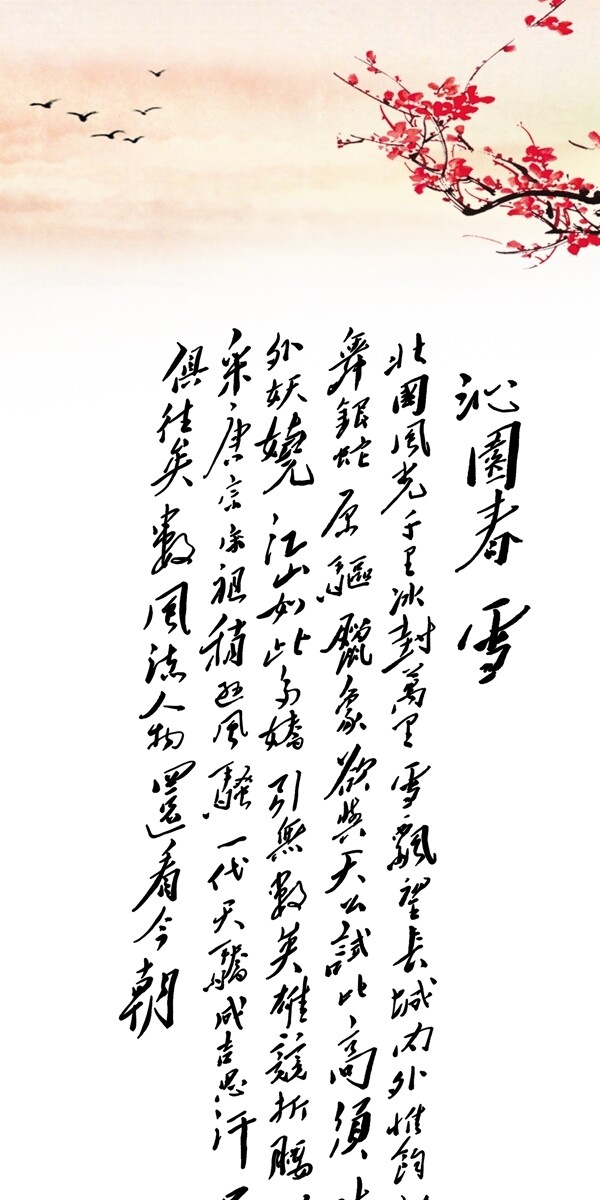 沁園春 雪
北國風光千里冰封萬里雪飄望長城內外惟餘
舞銀蛇原驅臘象欲與天公試比高須
外妖嬈江山如此多嬌引無數英雄競折腰
采唐宗宋祖稍遜風騷一代天驕成吉思汗
俱往矣數風流人物還看今朝